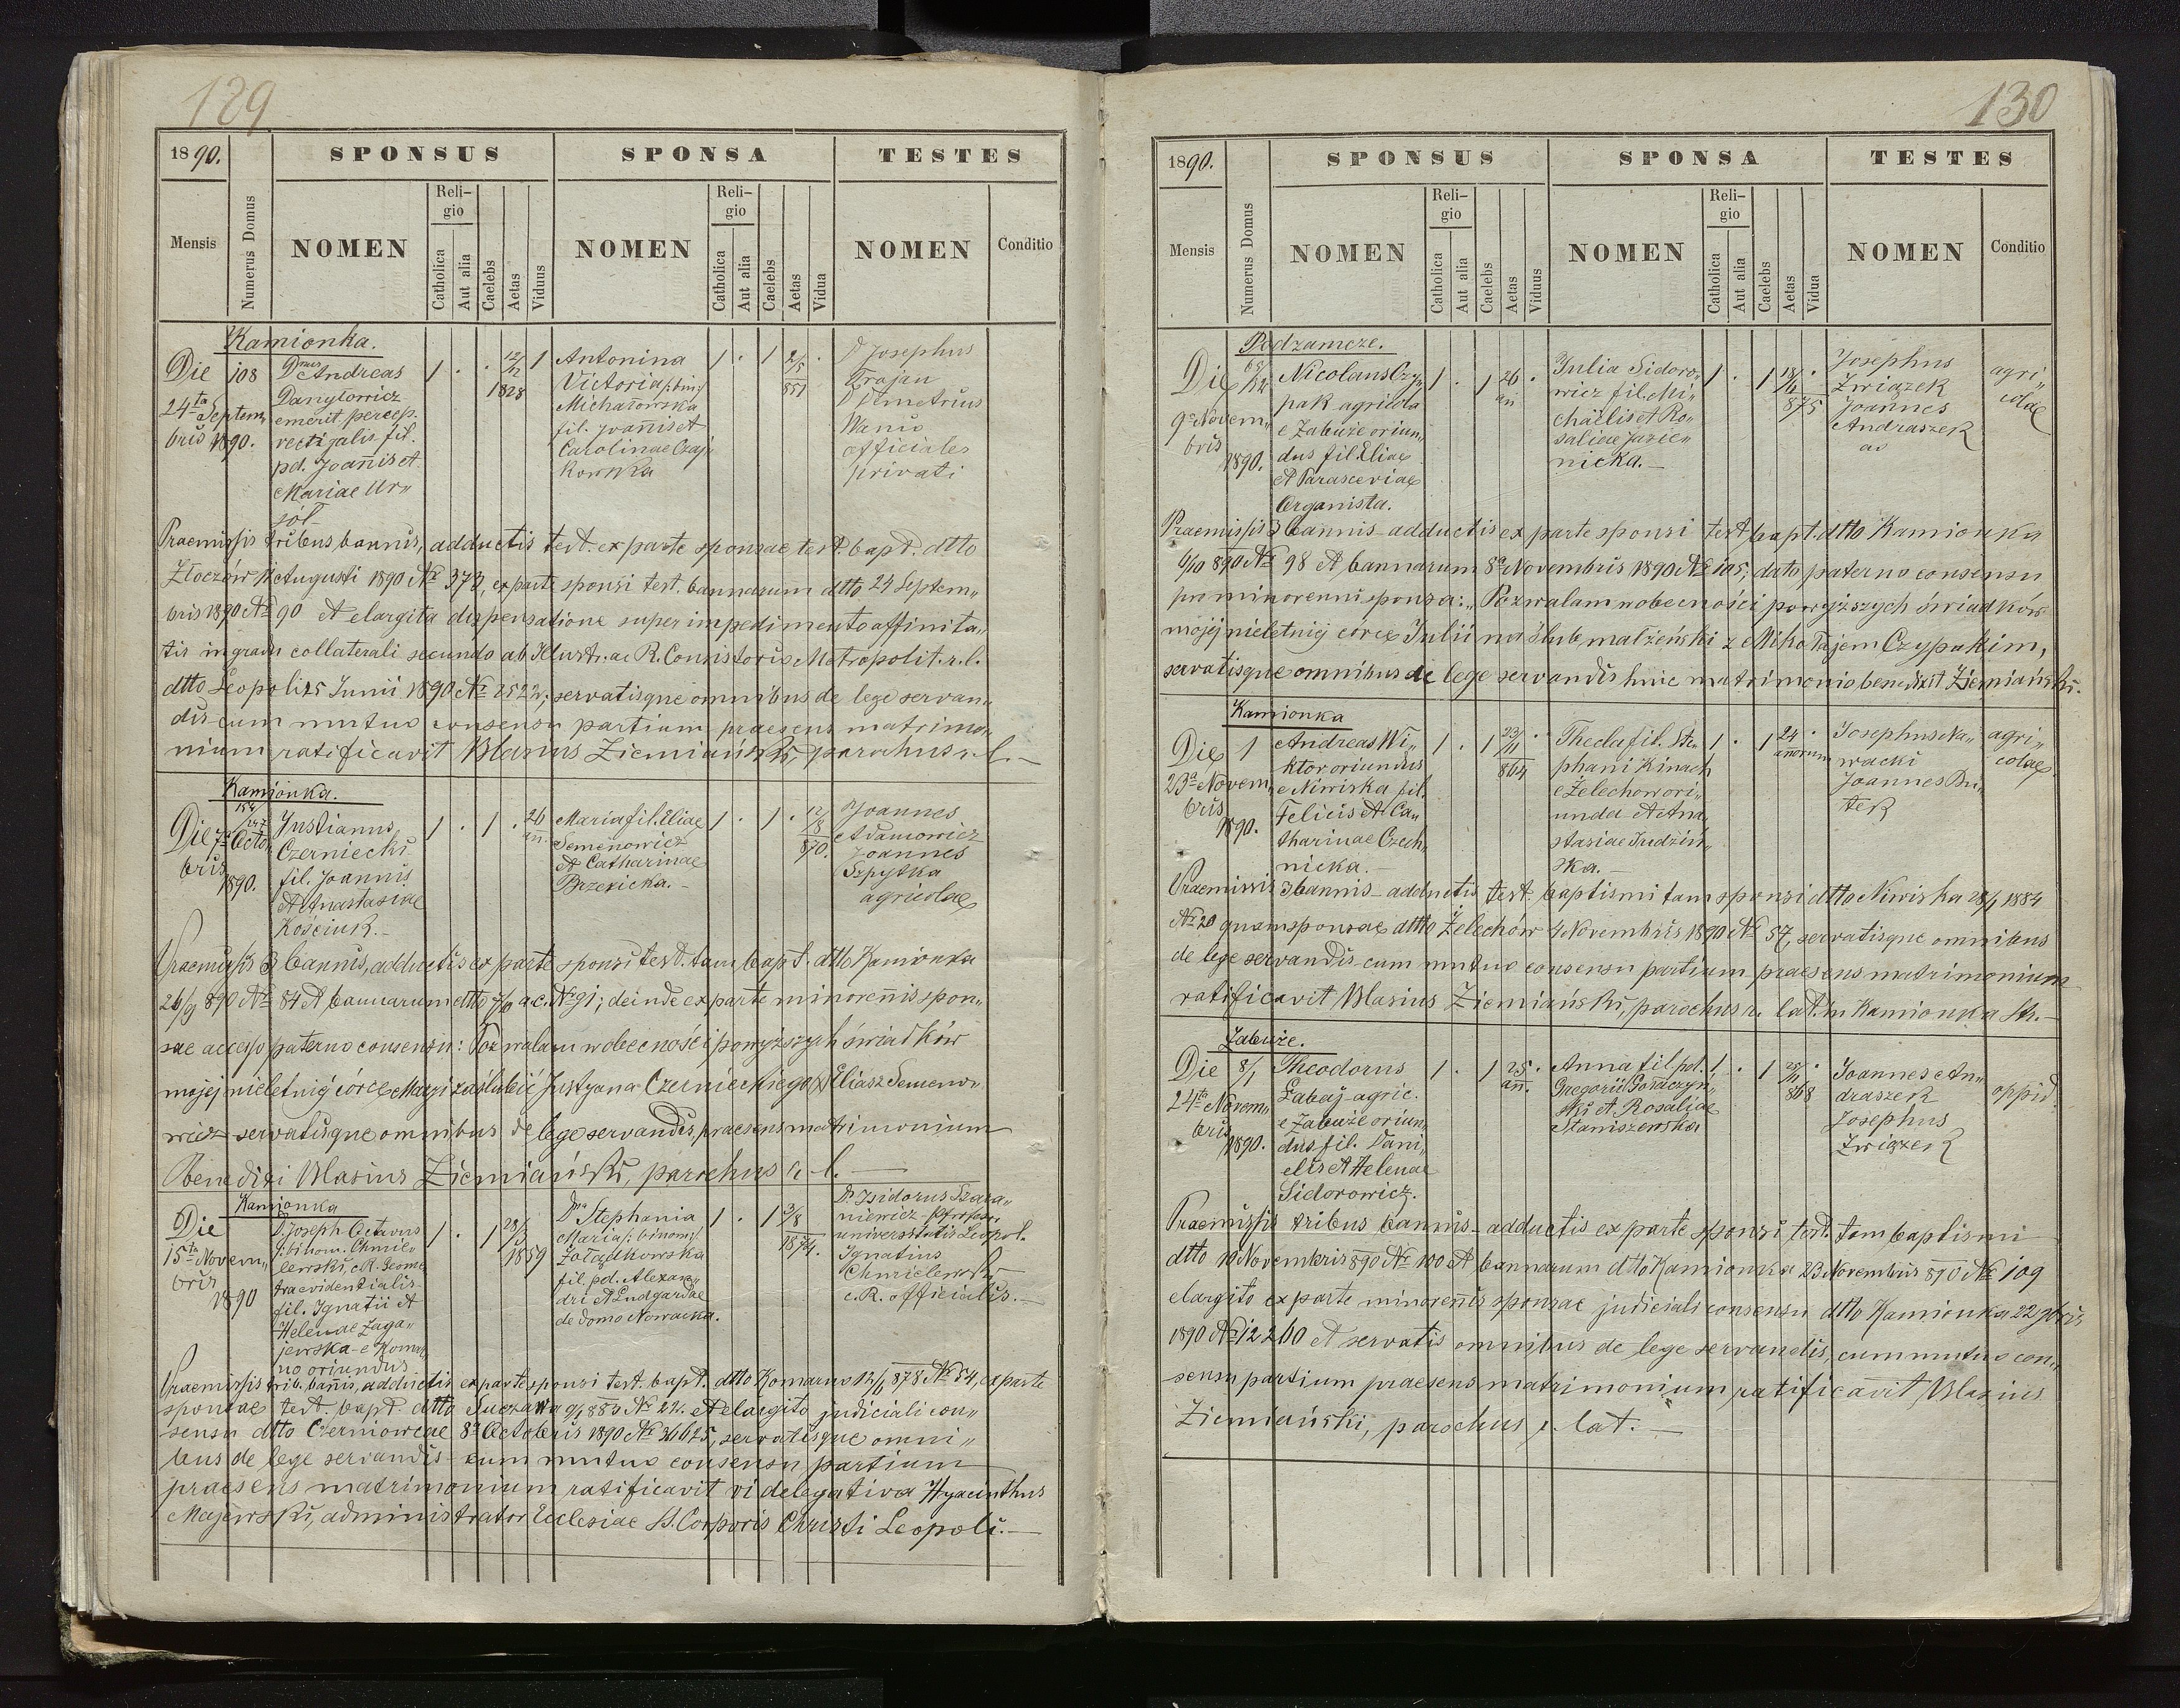 129
1890.
SPONSUS
SPONSA
TESTES
Mensis
Numerus Domus
NOMEN
Reli-
gio
Catholica
Aut alia
Caelebs
Aetas
Viduus
NOMEN
Reli-
gio
Catholica
Aut alia
Caelebs
Aetas
Vidua
NOMEN
Conditio
Kamionka.
Die
24ta Septem„
bris 1890.
108
Dnus Andreas
Danylowicz
emerit. percep.
vectigalis fil.
pd. Joannis et
Mariae Ur„
sól
1 . . 12/12 1828 1
Antonina
Victoria /:bin:/
Michałowska
fil. Joannis et
Carolinae Czaj„
kowska
1 . 1 2/5 851 .
D Josephus
Trojan
D Demetrius
Wanio
officiales
privati
Praemissis tribus bannis, adductis test. ex parte sponsae test. bapt. dtto
Złoczów 14 Augusti 1890 No 373, ex parte sponsi test. bannarum dtto 24 Septem„
bris 1890 No 90 et elargita dispensatione super impedimento affinita„
tis in gradu collaterali secundo ab Illustr. ac R. Consistorio Metropolit. r. l.
dtto Leopoli 25 Junii 1890 No 2522; servatisque omnibus de lege servan„
dis cum mutuo consensu partium praesens matrimo„
nium ratificavit Blasius Ziemiański, parochus r. l.—
Kamionka.
Die 7a Octo„
bris
1890.
154/247
Justianus
Czerniecki
fil. Joannis
et Anastasiae
Kościuk.—
1 . 1 26 an̄. .
Maria fil. Eliae
Semenowicz
et Catharinae
Brzezicka.—
1 . 1 12/8 870. .
Joannes
Adamowicz
Joannes
Szpytka
agricolae
Praemissis 3 bannis, adductis ex parte sponsi test. tam bapt. dtto Kamionka
26/9 890 No 84 et bannarum dtto 7/10 a.c. No 91; deinde ex parte minorennis spon„
sae accesso paterno consensu: Pozwalam w obecności powyższych świadków
mojej nieletniej córce Maryi zaślubić Justyana Czernieckiego, Eliasz Semeno„
wicz servatisque omnibus de lege servandis, praesens matrimonium
Benedixi Blasius Ziemiański, parochus r. l.—
Kamionka
Die
15ta Novem„
bris
1890
D. Joseph Octavus
/:binom. Chmie„
lewski, c. R. Geome„
tra evidentialis
fil. Ignatii et
Helenae Zaga„
jewska e Komar„
no oriundus
1 . 1 28/3 1859 .
Dna Stephania
Maria /:binom:/
Żołądkowska
fil. pd. Alexan„
dri et Ludgardae
de domo Nowacka.
1 . 1 3/8 1874. .
D. Isidorus Szara„
niewicz Professor
universitatis Leopol.
Ignatius
Chmielewski
c. R. officialis.—
Praemissis trib. bannis, adductis ex parte sponsi test. bapt. dtto Komarno 12/4 878 No 54, ex parte
sponsae test. bapt. dtto Suczawa 9/4 884 No 22. et elargito judiciali con„
sensu dtto Czerniowcae 8a Octobris 1890 No 36625, servatisque omni„
bus de lege servandis cum mutuo consensu partium
praesens matrimonium ratificavit vi delegativa Hyacinthus
Majewski, administrator Ecclesiae SS. Corporis Christi Leopoli.—
130
1890.
SPONSUS
SPONSA
TESTES
Mensis
Numerus Domus
NOMEN
Reli-
gio
Catholica
Aut alia
Caelebs
Aetas
Viduus
NOMEN
Reli-
gio
Catholica
Aut alia
Caelebs
Aetas
Vidua
NOMEN
Conditio
Podzamcze.
Die
9a Novem„
bris
1890.
Nicolaus Czy„
pak agricola
e Zabuże oriun„
dus fil. Eliae
et Parasceviae
Organista.
1 . 1 26 an̄ .
Julia Sidoro„
wicz fil. Mi„
chaëlis et Ro„
saliae Jazie„
nicka.—
1 . 1 875 .
Josephus
Związek
Joannes
Andraszek
agri„
colae
Praemissis 3 bannis adductis ex parte sponsi test. bapt. dtto Kamionka
6/10 890 No 98 et bannarum 8a Novembris 1890 No 105; dato paterno consensu
pro minorenni sponsa: „Pozwalam w obecności powyższych świadków
mojej nieletniej córce Julii na ślub małżeński z Mikołajem Czypakim,
servatisque omnibus de lege servandis huic matrimonio benedixit Ziemiański.
Kamionka
Die
23a Novem„
bris
1890.
1
Andreas Wi„
ktor oriundus
e Niwiska fil.
Felicis et Ca„
tharinae Czech„
nicka.—
1 . 1 23/11 864 .
Thecla fil. Ste„
phani Kinach
e Zelechow ori„
unda et Ana„
stasiae Judziń„
ska.—
1 . 1 24 annorum .
Josephus Na„
wacki
Joannes Du„
tek
agri„
colae
Praemissis 3 bannis adductis test. baptismi tam sponsi dtto Niwiska 28/1 1884
No 20 quam sponsae dtto Żelechów 4 Novembris 1890 No 57, servatisque omnibus
de lege servandis cum mutuo consensu partium praesens matrimonium
ratificavit Blasius Ziemiański, parochus r. lat. in Kamionka Str.—
Zabuże.
Die
24ta Novem„
bris
1890.
8/1
Theodorus
Łabaj agric.
e Zabuże oriun„
dus fil. Dani„
elis et Helenae
Sidorowicz.
1 . 1 25 an̄. .
Anna fil. pd.
Gregorii Goraczyń„
ski et Rosaliae
Staniszewska
1 . 1 25/11 868 .
Joannes An„
draszek
Josephus
Związek
oppid.
Praemissis tribus bannis adductis ex parte sponsi test. tam baptismi
dtto 10 Novembris 890 No 100 et bannarum dtto Kamionka 23 Novembris 890 No 109
elargito ex parte minorennis sponsae judiciali consensu dtto Kamionka 22 9bris
1890 No 12260 et servatis omnibus de lege servandis, cum mutuo con„
sensu partium praesens matrimonium ratificavit Blasius
Ziemiański, parochus r. lat.—